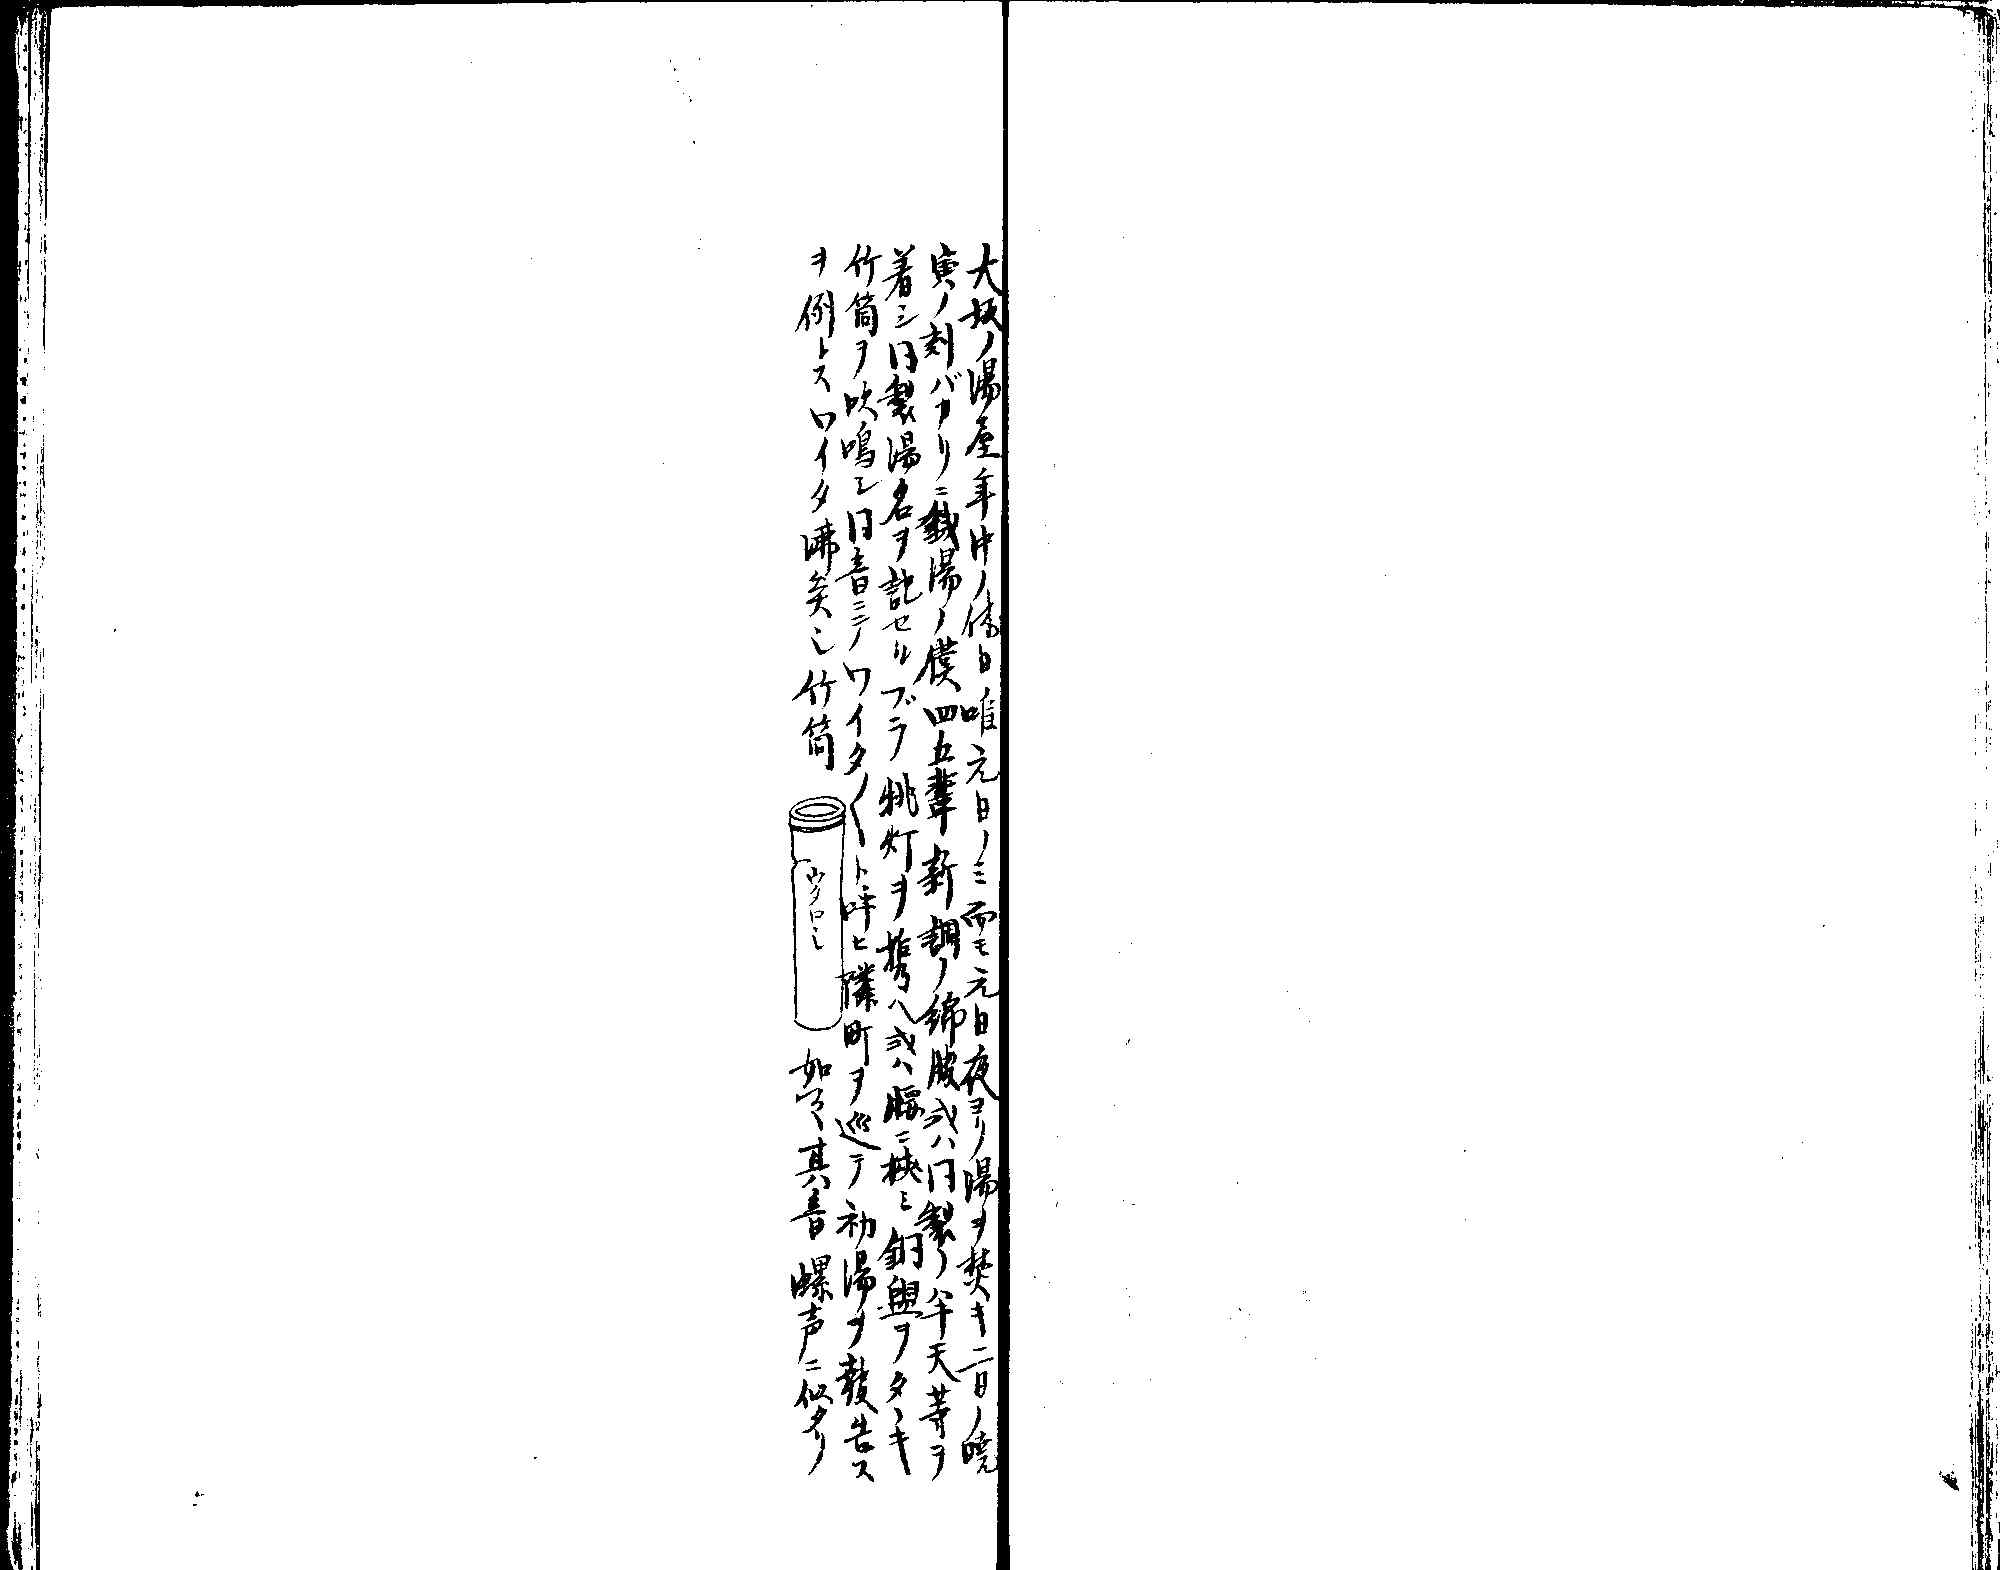 大坂ノ湯屋年中ノ休日唯元日ノミ而モ元日夜ヨリ湯ヲ焚キ二日ノ暁
寅ノ刻バカリニ銭湯ノ僕四五輩新調ノ綿服或ハ同製ノ半天等ヲ
着シ同製湯名ヲ記セルブラ挑灯ヲ携ヘ或ハ腰ニ挾ミ銅盥ヲタヽキ
竹筒ヲ吹鳴シ同音ニノワイタ〳〵ト呼ヒ隣町ヲ巡テ初湯ヲ報告ス
ヲ例トスワイタ沸矣也竹筒
ウタ口也
如此其音螺声ニ似タリ